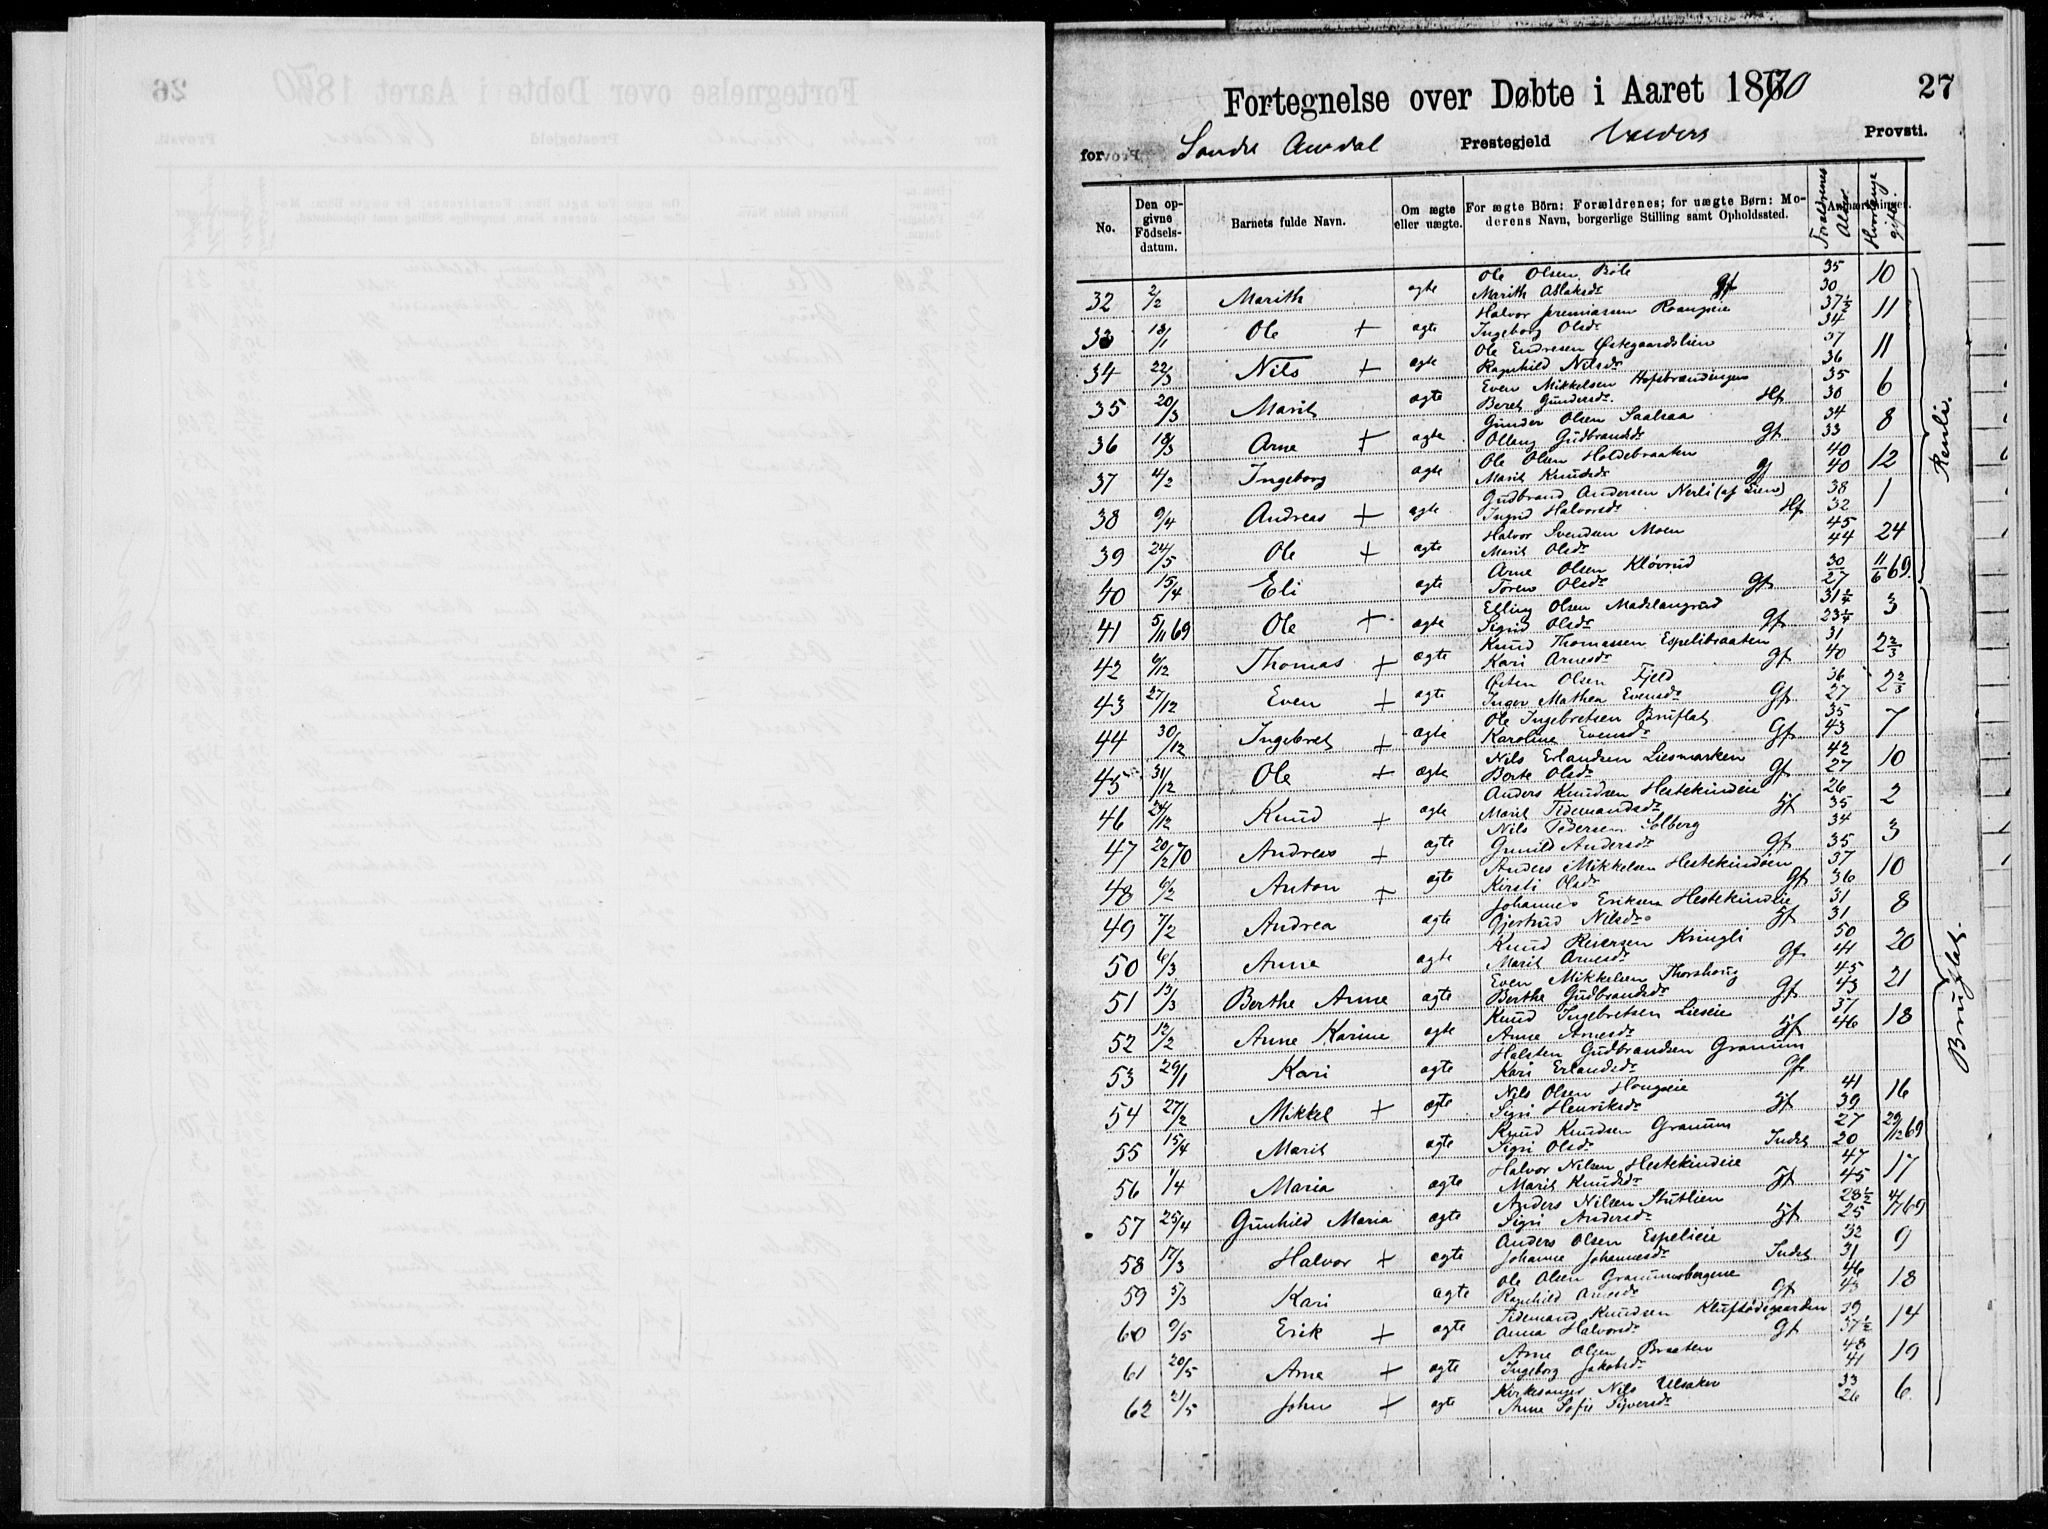 Fortegnelse over Døbte i Aaret 1870
27
for Søndre Aurdal Prestegjeld Valders Provsti.
No.
Den opgivne Födselsdatum.
Barnets fulde Navn.
Om ægte eller uægte.
For ægte Börn: Forældrenes; for uægte Børn: Moderens Navn, borgerlige Stilling samt Opholdssted.
Forældrenes Alder.
Anmærkninger.
Hvorlænge gifte.
Ole Olsen Bøle 35 10
32 2/2 Marith ægte Marith Aslaksdr Gf 30
Halvor Jeremiassen 37½ 11
33 13/1 Ole + ægte Ingeborg Olsdr 34
Ole Endresen Østegaardslien 37 11
34 22/3 Nils + ægte Ragnhild Nilsdr 36
Even Mikkelsen Hofsbraadingen 35 6
35 20/3 Marit ægte Beret Gundersdr. Hf 30
Gunder Olsen Saalsaa 34 8
36 18/3 Arne + ægte Ollaug Gudbrandsdr Gf 33
Ole Olsen Holdebraaten 40 12
37 4/2 Ingeborg ægte Marit Knudsdr Gf 40
Gudbrand Andersen Nerli (af Lien) 38 1
38 9/4 Andreas + ægte Ingrid Halvorsdr Hf 32
Halvor Svendsen Moen 45 24
39 24/5 Ole + ægte Marit Olsdr 44
Arne Olsen Kløvrud 30 11/6 69.
40 15/4 Eli ægte Toren Olsdr Gf 27
Renli.
Elling Olsen Madslangrud 31¼ 3
41 5/11 69 Ole + ægte Sigrid Olsdr Gf 23¼
Knud Thomassen Espelibraaten 31 2⅔
42 6/12 Thomas + ægte Kari Arnesdr Gf 40
Østen Olsen Fjeld 36 2⅔
43 27/12 Even + ægte Inger Mathea Evensdr Gf 27
Ole Ingebretsen Bruflat 35 7
44 30/12 Ingebret + ægte Karoline Evensdr Gf 43
Nils Erlandsen Liesmarken 42 10
45 31/12 Ole + ægte Berte Olsdr Gf 27
Anders Knudsen Hestekindeie 26 2
46 24/12 Knud + ægte Marit Tidemandsdr Gf 35
Nils Pedersen Solberg 34 3
47 20/2 70 Andreas + ægte Gunild Andersdr Gf 35
Anders Mikkelsen Hestekindeien 37 10
48 6/2 Anton + ægte Kirsti Olsdr Gf 36
Johannes Eriksen Hestekindeie 31 8
49 7/2 Andrea ægte Gjertrud Nilsdr Gf 31
Knud Reiersen Kringli 50 20
50 6/3 Anne ægte Marit Arnesdr Gf 41
Even Mikkelsen Thorshoug 45 21
51 13/3 Berthe Anne ægte Berthe Gudbrandsdr Gf 43
Knud Ingebretsen Lieseie 37 18
52 12/2 Anne Karine ægte Anne Arnesdr Gf 46
Halsten Gudbrandsen Granum
53 29/1 Kari ægte Kari Erlandsdr Gf
Nils Olsen Hougseie 41 16
54 27/2 Mikkel + ægte Sigri Henriksdr Gf 39
Knud Knudsen Granum 27 29/12 69
55 15/4 Marit ægte Sigri Olsdr Indst 20
Halvor Nilsen Hestekindeie 47 17
56 1/4 Maria ægte Marit Knudsdr Gf 45
Anders Nilsen Stutlien 28½ 4/7 69
57 25/4 Gunhild Maria ægte Sigri Andersdr Gf 25
Anders Olsen Espelieie 32 9
58 17/3 Halvor + ægte Johanne Johannesdr Indst 31
Ole Olsen Granumsbergene 46 18
59 5/3 Kari ægte Ragnhild Arnesdr Gf 43
Tidemand Knudsen Kluftødegaarden 39 14
60 9/5 Erik + ægte Anna Halvorsdr Gf 37½
Arne Olsen Braaten 48 19
61 20/5 Arne + ægte Ingeborg Jakobsdr 41
Kirkesanger Nils Ulsaker 33 6.
62 21/5 John + ægte Anne Sofie Syversdr 26
Bruflat.